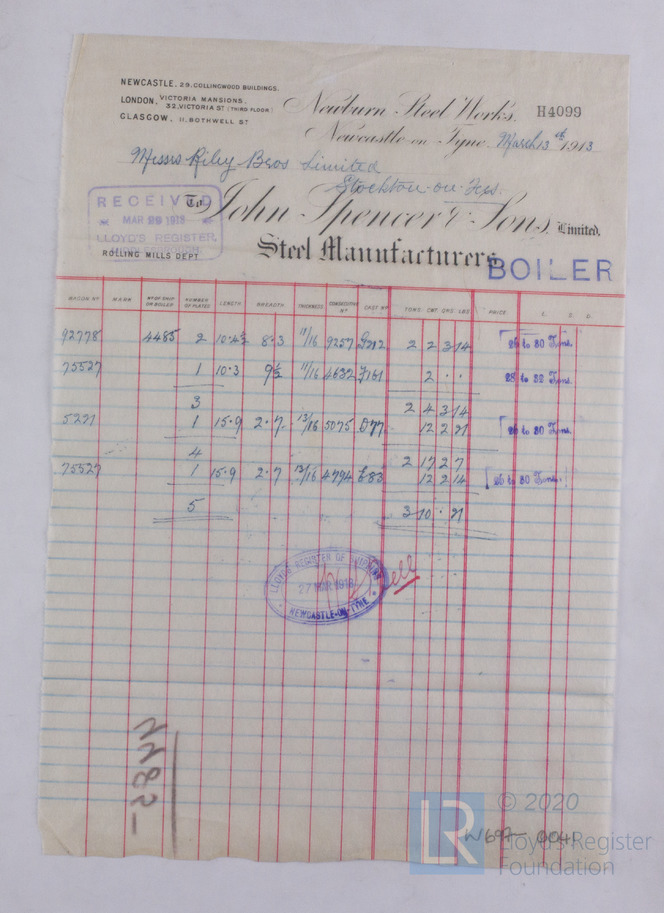 NEWCASTLE. 29. COLLINGWOOD BUILDINGS.
LONDON. VICTORIA MANSIONS. 32, VICTORIA ST (THIRD FLOOR)
GLASGOW. 11, BOTHWELL ST
Newburn Steel Works. H4099
Newcastle on Tyne. March 13th 1913
Messrs Riley Bros Limited
Stockton-on-Tees.
RECEIVED
MAR 28 1913
LLOYD'S REGISTER,
MIDDLESBROUGH.
To John Spencer & Sons, Limited.
ROLLING MILLS DEPT
Steel Manufacturers
BOILER
MARK NUMBER OF PLATES LENGTH BREADTH THICKNESS CONSECUTIVE NO CAST NO TONS CWT QRS LBS PRICE £. S. D.
92778 4485 2 10.4½ 8.3 11/16 9257 2 2 3 14 26 to 30 Tons.
75527 1 10.3 9½ 11/16 4632 2 . . 28 to 32 Tons.
3 2 4 3 14
1 15.9 2.7 13/16 5075 D77 12 2 21 26 to 30 Tons.
4 2 17 2 7
75527 1 15.9 2.7 13/16 4794 E83 12 2 14 26 to 30 Tons.
5 3 10 . 21
LLOYD'S REGISTER OF SHIPPING
27 MAR 1913
NEWCASTLE-ON-TYNE
LR
© 2020
Lloyd's Register
Foundation
W697-0041